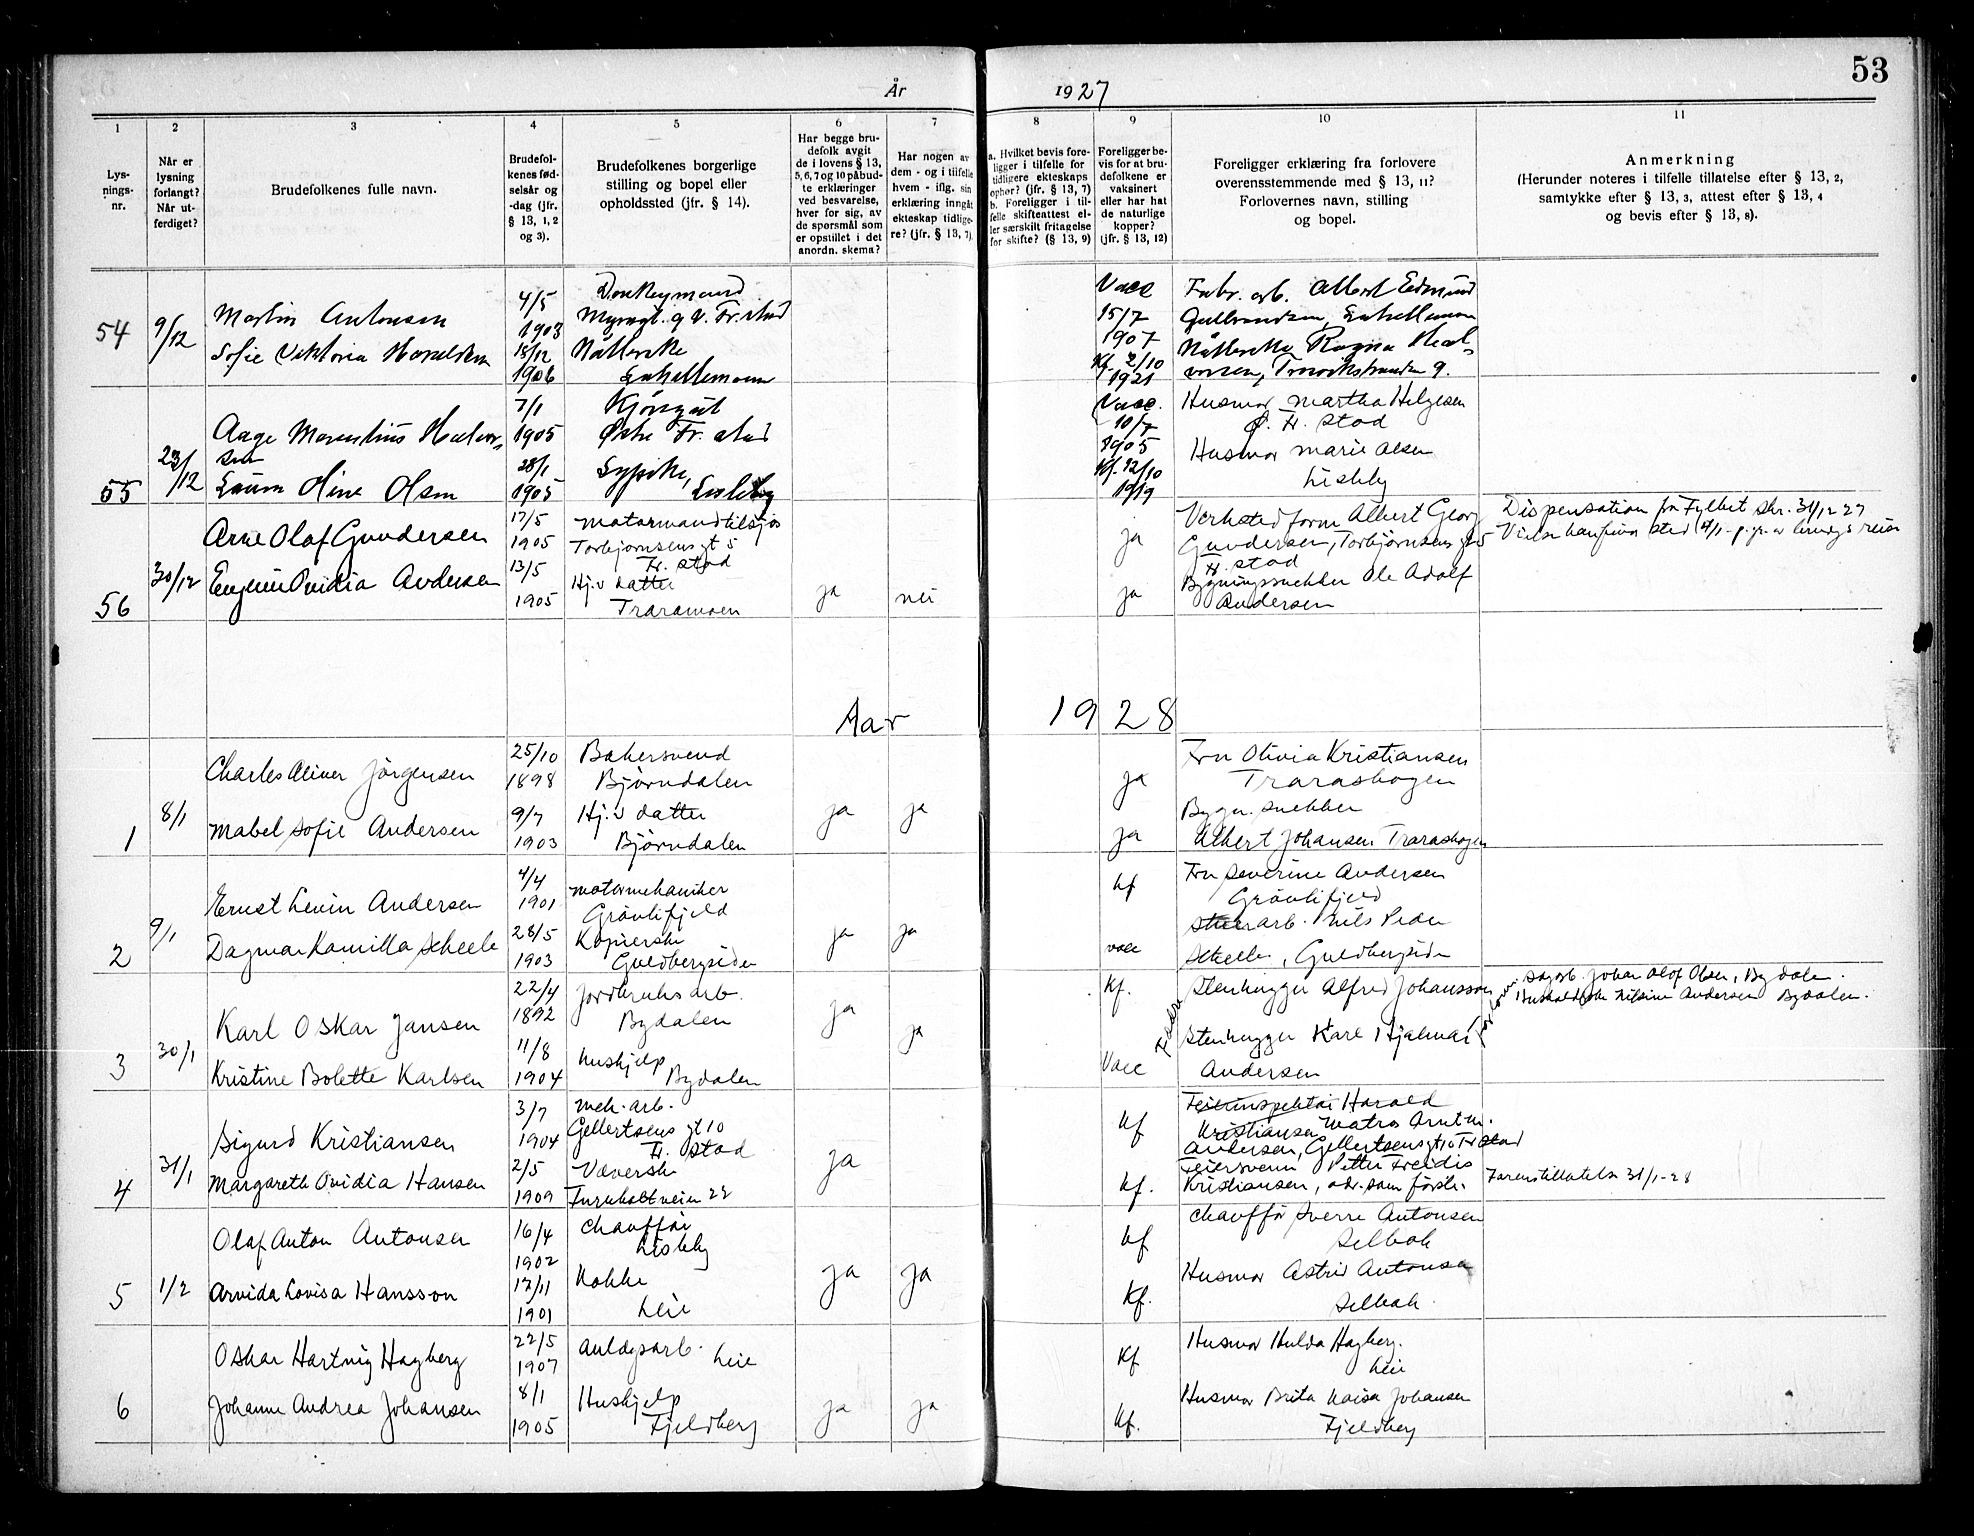 53
År 1927
1 2 3 4 5 6 7 8 9 10 11
Lys-
nings-
nr.
Når er
lysning
forlangt?
Når ut-
ferdiget?
Brudefolkenes fulle navn.
Brudefol-
kenes fød-
selsår og
-dag (jfr.
§ 13, 1, 2
og 3).
Brudefolkenes borgerlige
stilling og bopel eller
opholdssted (jfr. § 14).
Har begge bru-
defolk avgit
de i lovens § 13,
5, 6, 7 og 10 påbud-
te erklæringer
ved besvarelse,
hver for sig, av
de spørsmål som
er opstillet i det
anordn. skema?
Har nogen av
dem - og i tilfelle
hvem - iflg. sin
erklæring inngått
ekteskap tidlige-
re? (jfr. § 13, 7)
a. Hvilket bevis fore-
ligger i tilfelle for
tidligere ekteskaps
ophør? (jfr. § 13, 7)
b. Foreligger i til-
felle skifteattest el-
ler særskilt fritagelse
for skifte? (§ 13, 9)
Foreligger be-
vis for at bru-
defolkene er
vaksinert
eller har hat
de naturlige
kopper?
(jfr. § 13, 12)
Foreligger erklæring fra forlovere
overensstemmende med § 13, 11?
Forlovernes navn, stilling
og bopel.
Anmerkning
(Herunder noteres i tilfelle tillatelse efter § 13, 2,
samtykke efter § 13, 3, attest efter § 13, 4
og bevis efter § 13, 8).
54
9/12
Martin Antonsen
Sofie Viktoria Haraldsen
4/5
1903
15/12
1906
Donkeymand
Myragt. 9 V. Fr.stad
Nåtlerske
Enhellemoen
Vacc
15/7
1907
Kf. 2/10
1921
Fabr. arb. Albert Edmund
Gulbrandsen, Enhellemoen
Nåtlerske Ragna Hal-
vorsen,
55
23/12
Aage Marentius Halvor-
sen
Laura Oline Olsen
7/1
1905
28/1
1905
Kjøregut
Østre Fr. stad
Sypike,
Lisleby
Vacc.
10/7
1905
Kf. 12/10
1919
Husmor Martha Helgesen
Ø. Fr. stad
Husmor Marie Olsen
Lisleby
56
30/12
Arne Olaf Gundersen
Eugenie Ovidia Andersen
17/5
1905
13/5
1905
Motormand tilsjøs
Torbjørnsens gt 5
Fr. stad
Hj.v datter
Traramoen
ja
nei
ja
ja
Verkstedform Albert Georg
Gundersen, Torbjørnsens gt 5
Fr. stad
Bygningssnekker Ole Adolf
Andersen
Dispensation fra Fylket skr. 31/12 27
Aar 1928
1
8/1
Charles Oliver Jørgensen
Mabel Sofie Andersen
25/10
1898
9/7
1903
Bakersvend
Bjørndalen
Hj.v datter
Bjørndalen
ja
ja
ja
ja
Fru Olivia Kristiansen
Traraskogen
Bygn. snekker
Albert Johansen Traraskogen
2
9/1
Ernst Levin Andersen
Dagmar Kamilla Scheele
4/4
1901
28/5
1903
Motormekaniker
Grønlifjeld
Kopierske
Guldbergsiden
ja
ja
kf
vacc
Fru Severine Andersen
Grønlifjeld
arb. Nils Peder
Scheele, Guldbergsiden
3
30/1
Karl Oskar Jansen
Kristine Bolette Karlsen
22/4
1892
11/8
1904
Jordbruks arb.
Bydalen
Hushjelp
Bydalen
ja
ja
Kf.
Vacc
Stenhugger Alfred Johansson
Stenhugger Karl Hjalmar
Andersen
Sagarb. Johan Olof Olsen, Bydalen.
Nilsine Andersen Bydalen.
4
31/1
Sigurd Kristiansen
Margareth Ovidia Hansen
3/7
1904
2/5
1909
Mek. arb.
Gellertsens gt 10
Fr. stad
Væverske
Furuholtveien 22
ja
kf
kf.
Feierinspektør Harald
Kristiansen Matros Arnt M.
Andersen, Gellertsensgt 10 Fr stad
Feiersvenn Petter Freidis
Kristiansen, adr. som første.
Farenstillatelse 31/1-28
5
1/2
Olaf Anton Antonsen
Arvida Lovisa Hansson
16/4
1902
17/11
1901
Chauffør
Lisleby
Kokke
Leie
ja
ja
kf
Kf.
Chauffør Sverre Antonsen
Selbak
Husmor Astrid Antonsen
Selbak.
6
Oskar Hartvig Hagberg
Johanne Andrea Johansen
22/5
1907
8/1
1905
Anldgsarb.
Leie
Hushjelp
Fjeldberg
ja
ja
Kf
Kf.
Husmor Hulda Hagberg.
Leie
Husmor Brita Kaisa Johansen
Fjeldberg